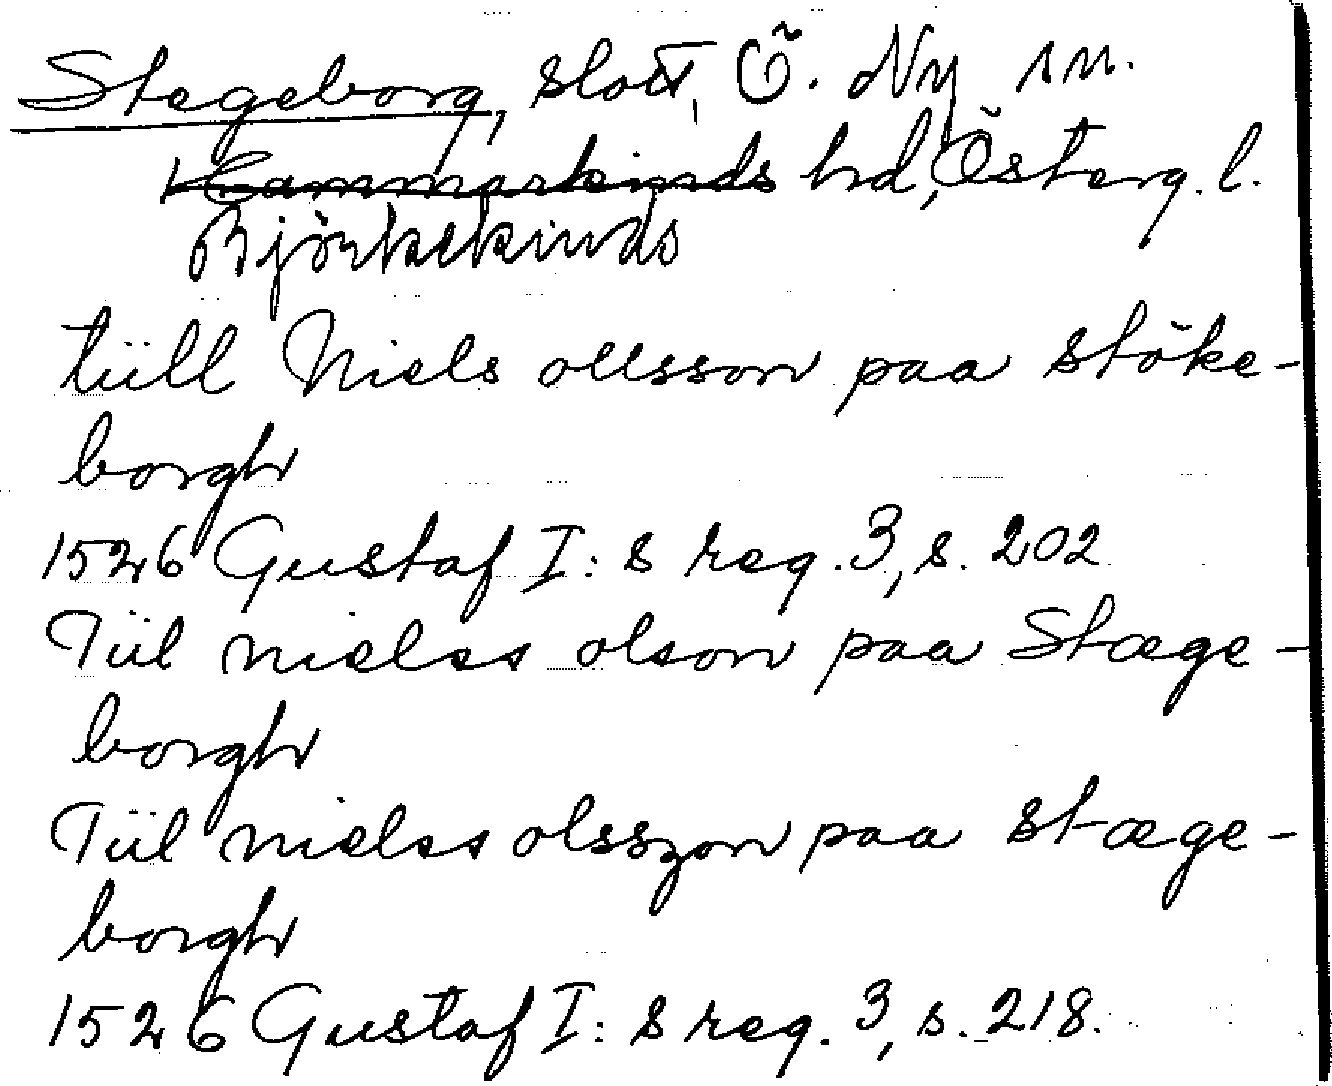 Stegeborg, slott, Ö. Ny sn.
Hammarkinds hd, Österg. l.
Björkekinds
tiill Niels ollsson paa stöke-
borgh
1526 Gustaf I: s reg. 3, s. 202
Tiil nielss olson paa Stæge-
borgh
Tiil nielss olsszon paa stæge-
borgh
1526 Gustaf I: s reg. 3, s. 218.